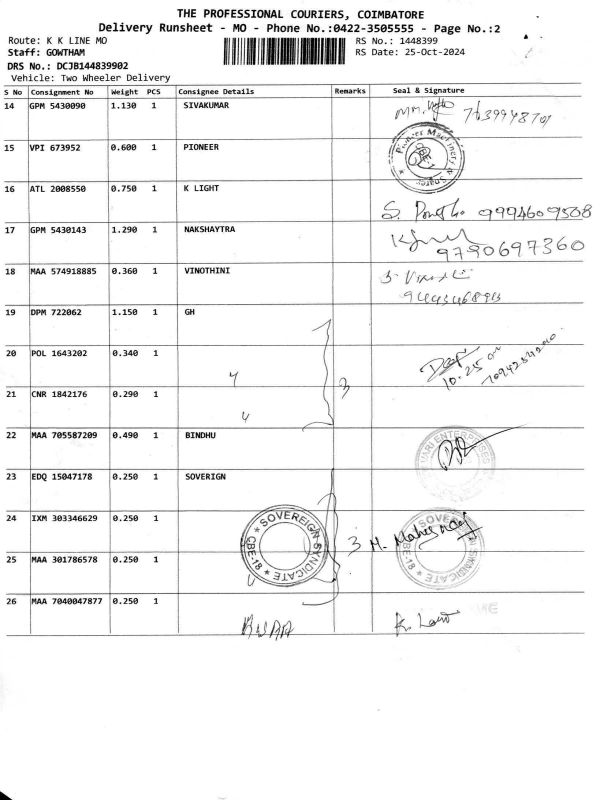 THE PROFESSIONAL COURIERS, COIMBATORE
Delivery Runsheet - MO - Phone No.:0422-3505555 - Page No.:2
Route: K K LINE MO
RS No.: 1448399
Staff: GOWTHAM
RS Date: 25-Oct-2024
DRS No.: DCJB144839902
Vehicle: Two Wheeler Delivery
S No Consignment No Weight PCS Consignee Details Remarks Seal & Signature
14 GPM 5430090 1.130 1 SIVAKUMAR
15 VPI 673952 0.600 1 PIONEER
Pioneer Machinery &
16 ATL 2008550 0.750 1 K LIGHT
S. 9994609508
17 GPM 5430143 1.290 1 NAKSHAYTRA
9790697360
18 MAA 574918885 0.360 1 VINOTHINI
19 DPM 722062 1.150 1 GH
20 POL 1643202 0.340 1
10.25
21 CNR 1842176 0.290 1 3
22 MAA 705587209 0.490 1 BINDHU
ENTERPRISES
23 EDQ 15047178 0.250 1 SOVERIGN
24 IXM 303346629 0.250 1 SOVEREIGN SYNDICATE CBE-18 3 M. SOVEREIGN SYNDICATE CBE-18
25 MAA 301786578 0.250 1
26 MAA 7040047877 0.250 1